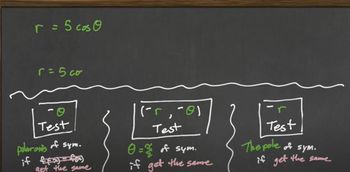 r = 5 cos θ
r = 5 co
-θ
Test
polar axis of sym.
if
get the same
(-r, -θ)
Test
θ = π/2 of sym.
if get the same
-r
Test
The pole of sym.
if get the same